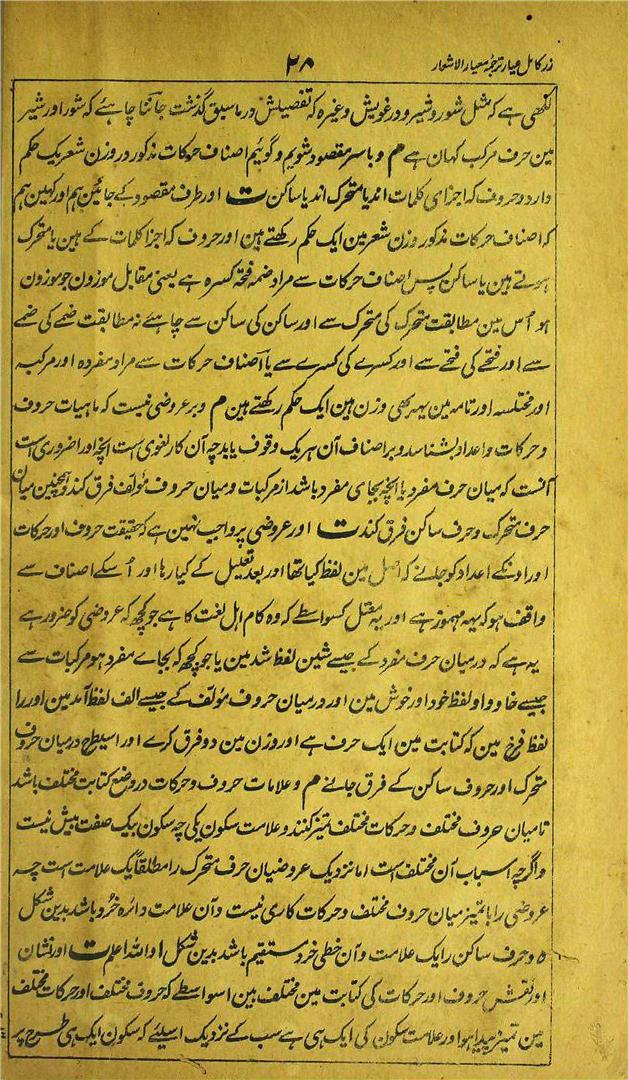 زر کامل عیار ترجمہ معیار الاشعار ۲۸
لکھی ہے کہ مثل شور و شیر و درغویش وغیرہ کہ تفصیلش در ما سبق گذشت جاننا چاہئے کہ شور اور شیر
مین حرف مرکب کہان ہے م و با سر مقصود شویم و گوئیم اصناف حرکات مذکور در وزن شعر یک حکم
دارد و حروف کہ اجزای کلمات اند یا متحرک اند یا ساکن ت اور طرف مقصود کے جائین ہم اور کہین ہم
کہ اصناف حرکات مذکور وزن شعر مین ایک حکم رکھتے ہین اور حروف کہ اجزا کلمات کے ہین یا متحرک
ہوتے ہین یا ساکن پس اصناف حرکات سے مراد ضمہ فتحہ کسرہ ہے یعنی مقابل موزون جو موزون
ہو اُس مین مطابقت متحرک کی متحرک سے اور ساکن کی ساکن سے چاہئے نہ مطابقت ضمے کی ضمے
سے اور فتحے کی فتحے سے اور کسرے کی کسرے سے یا اصناف حرکات سے مراد مفردہ اور مرکبہ
اور مختلسہ اور تامہ مین یہہ بھی وزن مین ایک حکم رکھتے ہین م و بر عروضی نیست کہ ماہیات حروف
و حرکات و اعداد بشناسد و بر اصناف آن ہر یک وقوف یابد چہ آن کار لغوی است آنچہ او را ضروری است
آنست کہ میان حرف مفرد یا آنچہ بجای مفرد باشد از مرکبات و میان حروف مؤلف فرق کند و ہمچنین میان
حرف متحرک و حرف ساکن فرق کند ت اور عروضی پر واجب نہین ہے کہ حقیقت حروف اور حرکات
اور اونکے اعداد کو جانے کہ اصل مین لفظ کیا تھا اور بعد تعلیل کے کیا رہا اور اُسکے اصناف سے
واقف ہو کہ یہہ مہموز ہے اور یہ معتل کسواسطے کہ وہ کام اہل لغت کا ہے جو کچھ کہ عروضی کو ضرور ہے
یہ ہے کہ درمیان حرف مفرد کے جیسے شین لفظ شد مین یا جو کچھ کہ بجاے مفرد ہو مرکبات سے
جیسے خا و واو لفظ خود اور خوش مین اور درمیان حروف مؤلف کے جیسے الف لفظ آمد مین اور را
لفظ فرخ مین کہ کتابت مین ایک حرف ہے اور وزن مین دو فرق کرے اور اسیطرح درمیان حروف
متحرک اور حروف ساکن کے فرق جانے م و علامات حروف و حرکات در وضع کتابت مختلف باشد
تا میان حروف مختلف و حرکات مختلف تمیز کنند و علامت سکون یکی چہ سکون بیک صفت بیش نیست
و اگرچہ اسباب آن مختلف است اما نزدیک عروضیان حرف متحرک را مطلقاً یک علامت است چہ
عروضی را با تمیز میان حروف مختلف و حرکات کاری نیست و آن علامت دائرہ خُرد باشد بدین شکل
ہ و حرف ساکن را یک علامت و آن خطی خرد مستقیم باشد بدین شکل ا واللہ اعلم ت اور نشان
اور نقش حروف اور حرکات کی کتابت مین مختلف ہین اسواسطے کہ حروف مختلف اور حرکات مختلف
مین تمیز پیدا ہو اور علامت سکون کی ایک ہی ہے سب کے نزدیک اسلیئے کہ سکون ایک ہی طرح پر